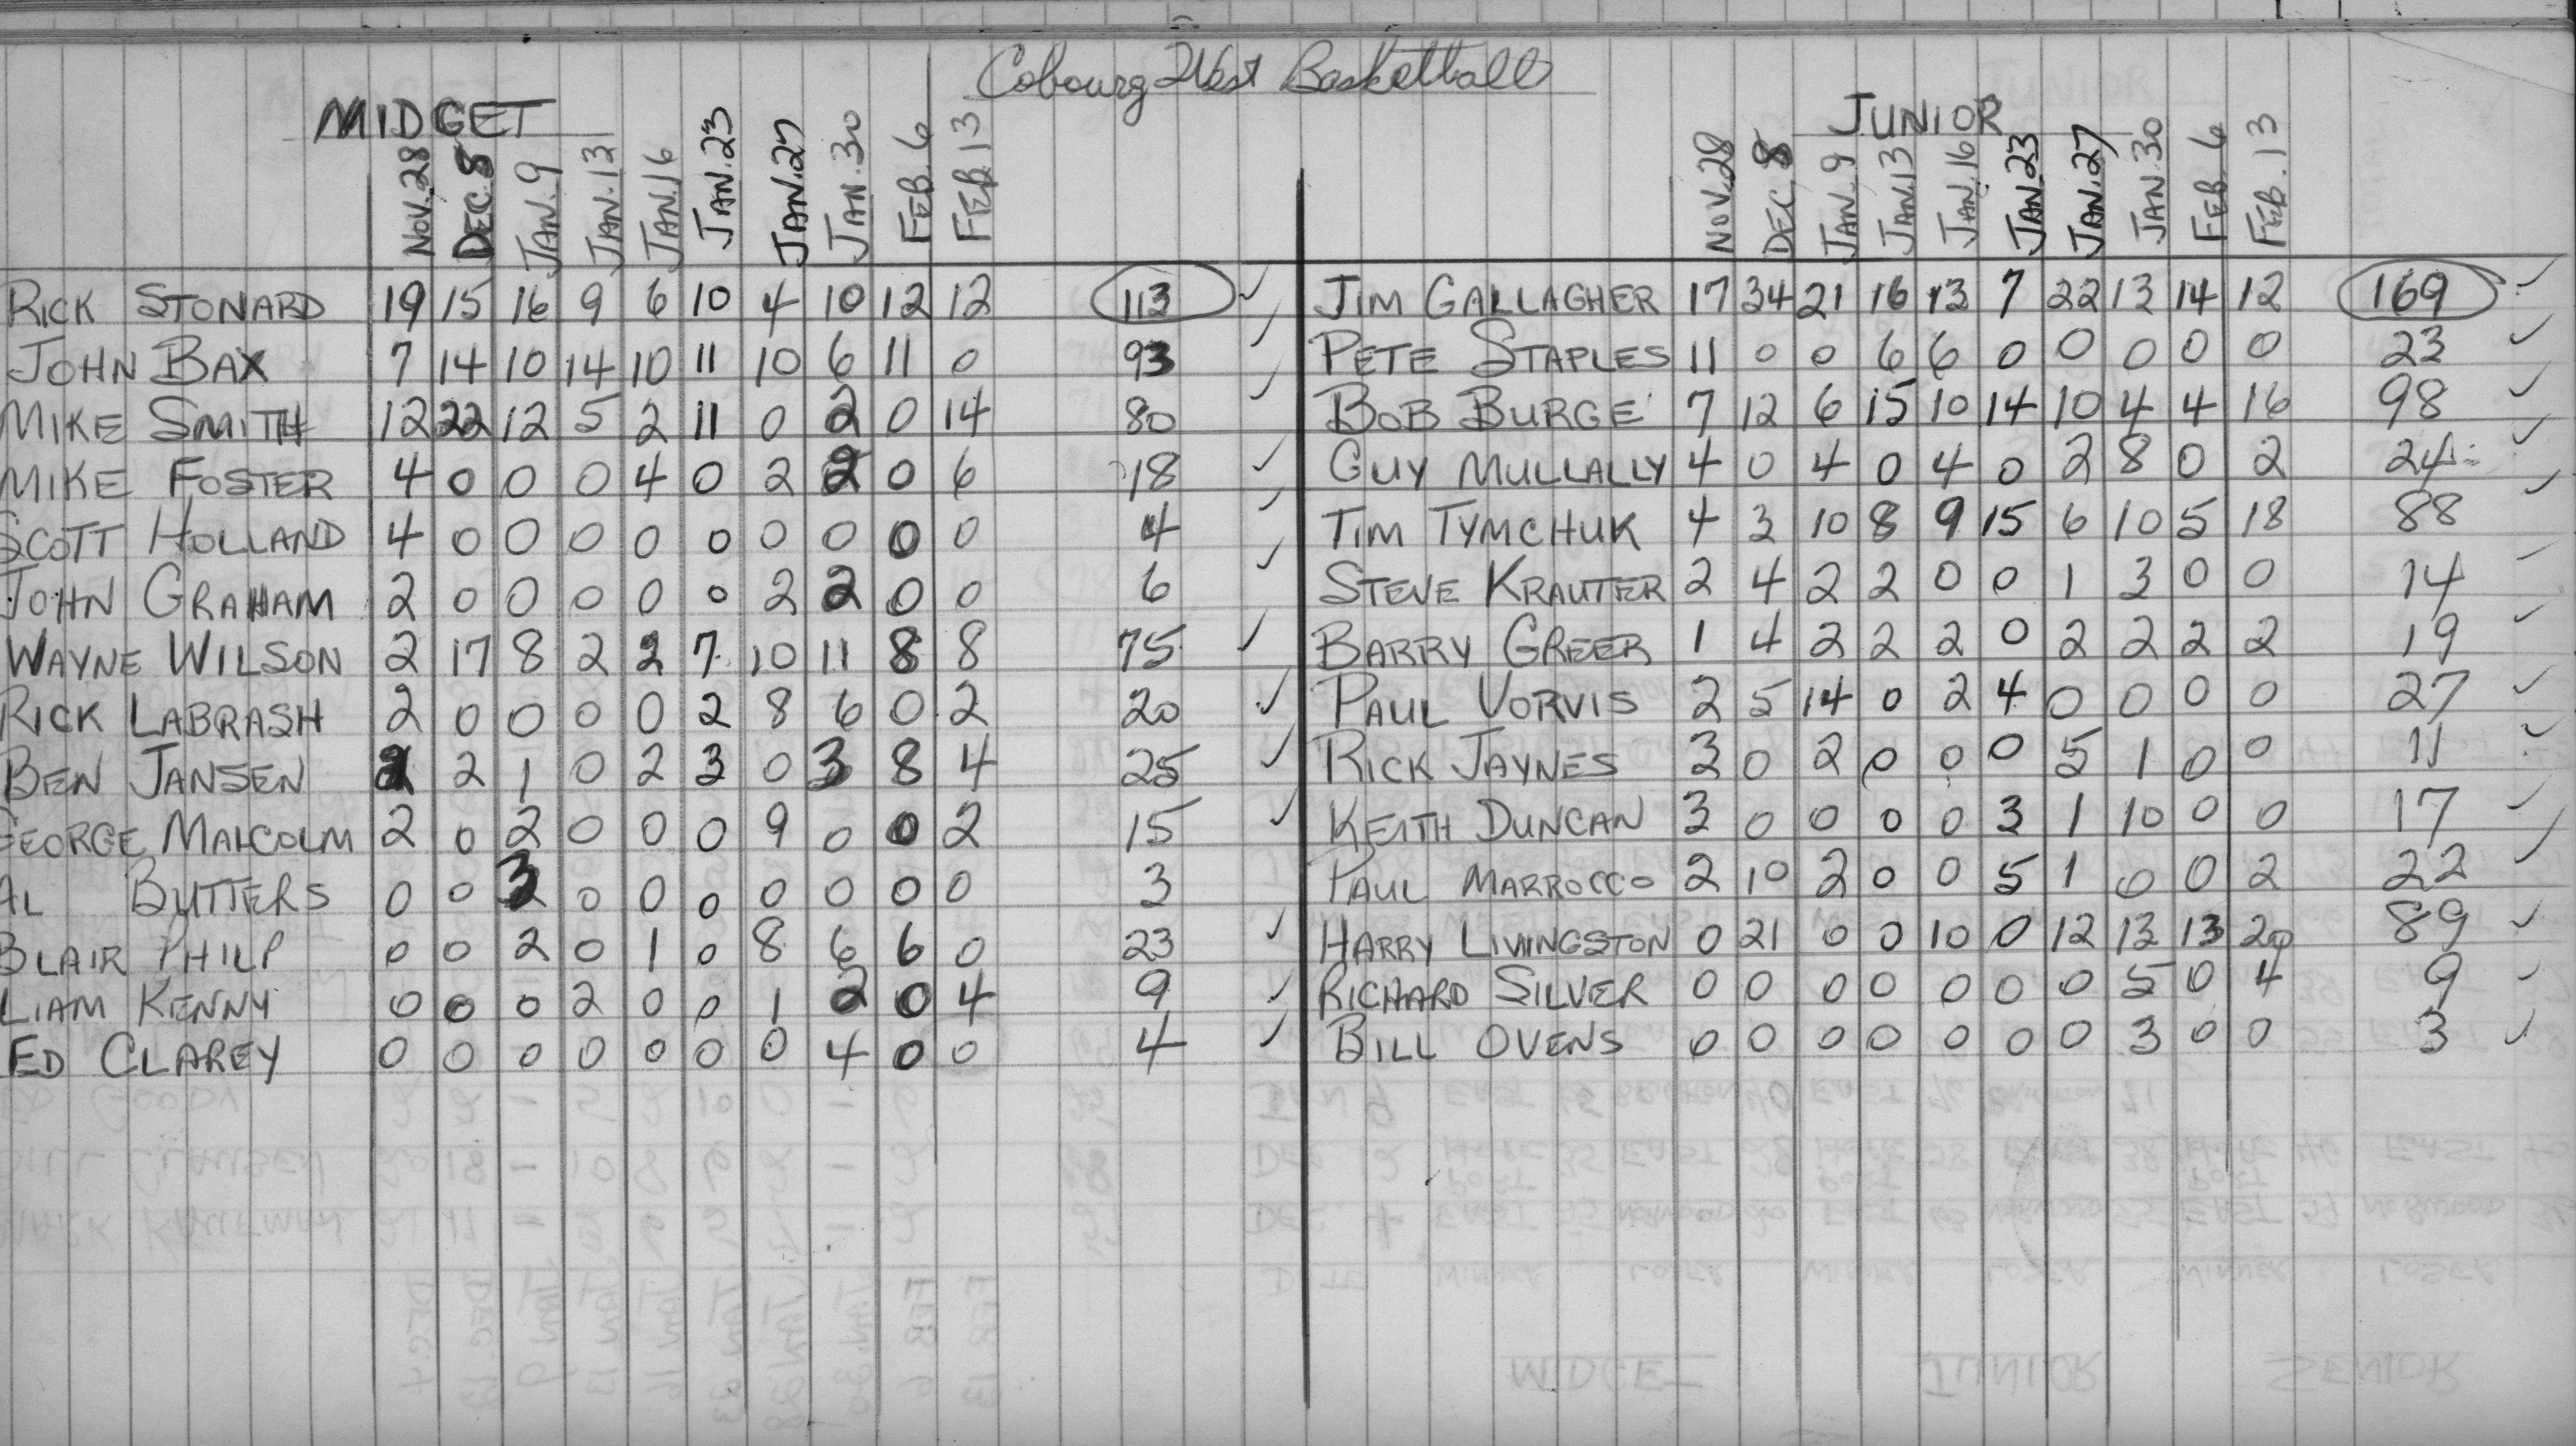 Cobourg West Basketball
MIDGET
NOV. 28 DEC. 8 JAN. 9 JAN. 13 JAN. 16 JAN. 23 JAN. 27 JAN. 30 FEB. 6 FEB. 13
RICK STONARD 19 15 16 9 6 10 4 10 12 12 113 ✓
JOHN BAX 7 14 10 14 10 11 10 6 11 0 93 ✓
MIKE SMITH 12 22 12 5 2 11 0 2 0 14 80 ✓
MIKE FOSTER 4 0 0 0 4 0 2 2 0 6 18 ✓
SCOTT HOLLAND 4 0 0 0 0 0 0 0 0 0 4 ✓
JOHN GRAHAM 2 0 0 0 0 0 2 2 0 0 6 ✓
WAYNE WILSON 2 17 8 2 2 7 10 11 8 8 75 ✓
RICK LABRASH 2 0 0 0 0 2 8 6 0 2 20 ✓
BEN JANSEN 2 2 1 0 2 3 0 3 8 4 25 ✓
GEORGE MALCOLM 2 0 2 0 0 0 9 0 0 2 15 ✓
AL BUTTERS 0 0 3 0 0 0 0 0 0 0 3
BLAIR PHILP 0 0 2 0 1 0 8 6 6 0 23 ✓
LIAM KENNY 0 0 0 2 0 0 1 2 0 4 9 ✓
ED CLAREY 0 0 0 0 0 0 0 4 0 0 4 ✓
JUNIOR
NOV. 28 DEC. 8 JAN. 9 JAN. 13 JAN. 16 JAN. 23 JAN. 27 JAN. 30 FEB. 6 FEB. 13
JIM GALLAGHER 17 34 21 16 13 7 22 13 14 12 169 ✓
PETE STAPLES 11 0 0 6 6 0 0 0 0 0 23 ✓
BOB BURGE 7 12 6 15 10 14 10 4 4 16 98 ✓
GUY MULLALLY 4 0 4 0 4 0 2 8 0 2 24 ✓
TIM TYMCHUK 4 3 10 8 9 15 6 10 5 18 88 ✓
STEVE KRAUTER 2 4 2 2 0 0 1 3 0 0 14 ✓
BARRY GREER 1 4 2 2 2 0 2 2 2 2 19 ✓
PAUL VORVIS 2 5 14 0 2 4 0 0 0 0 27 ✓
RICK JAYNES 3 0 2 0 0 0 5 1 0 0 11 ✓
KEITH DUNCAN 3 0 0 0 0 3 1 10 0 0 17 ✓
PAUL MARROCCO 2 10 2 0 0 5 1 0 0 2 22 ✓
HARRY LIVINGSTON 0 21 0 0 10 0 12 13 13 20 89 ✓
RICHARD SILVER 0 0 0 0 0 0 0 5 0 4 9 ✓
BILL OVENS 0 0 0 0 0 0 0 3 0 0 3 ✓